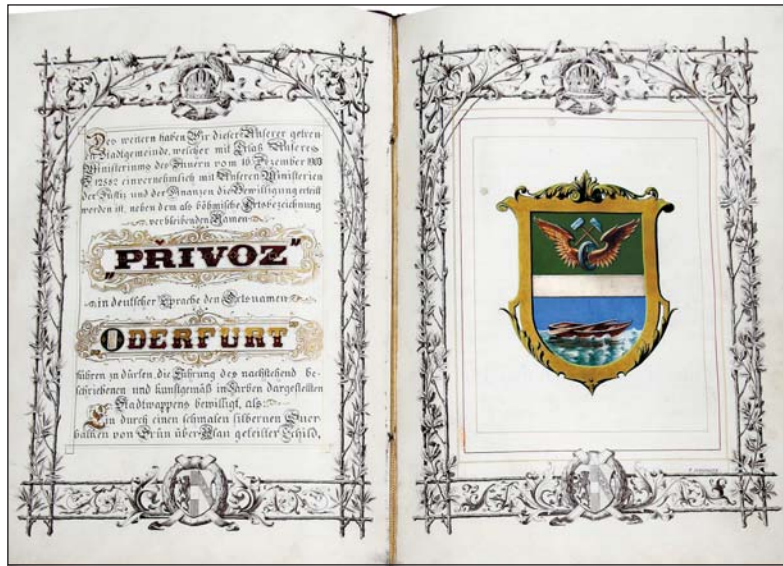 Des weitern haben Wir dieser Unserer getreu-
en Stadtgemeinde, welcher mit Erlaß Unseres
Ministeriums des Innern vom 16. Dezember 1903
Z 12582 einvernehmlich mit Unseren Ministerien
der Justiz und der Finanzen die Bewilligung erteilt
worden ist, neben dem als böhmische Ortsbezeichnung
verbleibenden Namen
„PŘIVOZ"
in deutscher Sprache den Ortsnamen
„ODERFURT"
führen zu dürfen, die Führung des nachstehend be-
schriebenen und kunstgemäß in Farben dargestellten
Stadtwappens bewilligt, als:
Ein durch einen schmalen silbernen Quer-
balken von Grün über Blau geteilter Schild,